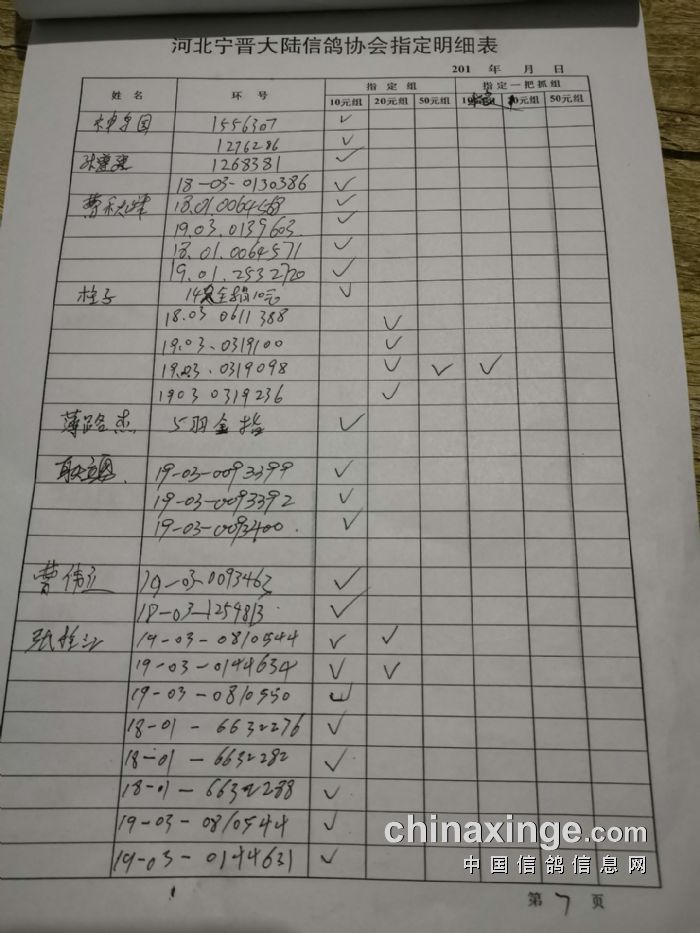 河北宁晋大陆信鸽协会指定明细表
201 年 月 日
姓名 环号 指定组 指定一把抓组
10元组 20元组 50元组 10元组 20元组 50元组
1556307 ✓
1276286 ✓
1268381 ✓
18-03-0130386 ✓
18.01.0064568 ✓
19.03.0139603 ✓
18.01.0064571 ✓
19.01.2532720 ✓
柱子 全指10元 ✓
18.03 0611388 ✓
19.03.0319100 ✓
19.03.0319098 ✓ ✓ ✓
1903 0319236 ✓
薄路杰 5羽全指 ✓
19-03-0093399 ✓
19-03-0093392 ✓
19-03-0093400. ✓
曹伟 19-03-0093462 ✓
18-03-1259813 ✓
张 19-03-0810544 ✓ ✓
19-03-0144634 ✓ ✓
19-03-0810550 ✓
18-01-6632276 ✓
18-01-6632282 ✓
18-01-6632288 ✓
19-03-0810544 ✓
19-03-0144631 ✓
chinaxinge.com
中国信鸽信息网
第 7 页